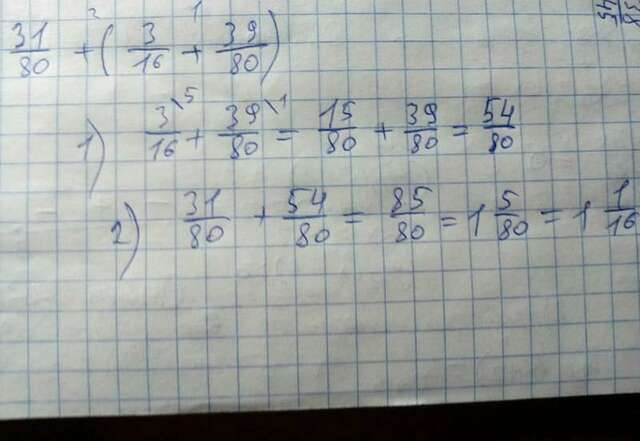 2 1
31/80 + ( 3/16 + 39/80 )
1) 3\5/16 + 39\1/80 = 15/80 + 39/80 = 54/80
2) 31/80 + 54/80 = 85/80 = 1 5/80 = 1 1/16